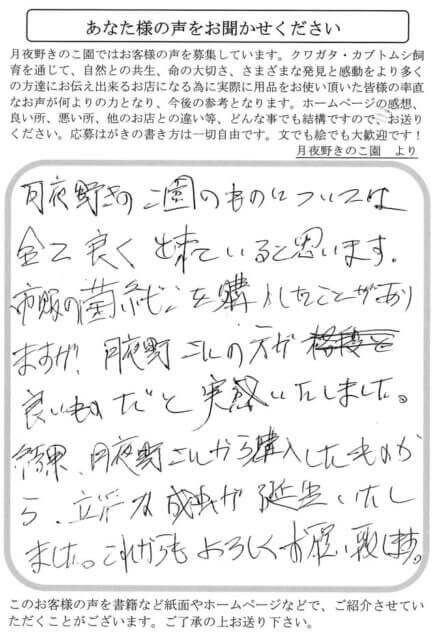 あなた様の声をお聞かせください
月夜野きのこ園ではお客様の声を募集しています。クワガタ・カブトムシ飼
育を通じて、自然との共生、命の大切さ、さまざまな発見と感動をより多く
の方達にお伝え出来るお店になる為に実際に用品をお使い頂いた皆様の率直
なお声が何よりの力となり、今後の参考となります。ホームページの感想、
良い所、悪い所、他のお店との違い等、どんな事でも結構ですので、お送り
ください。応募はがきの書き方は一切自由です。文でも絵でも大歓迎です！
月夜野きのこ園　より
月夜野きのこ園のものについては
全て良く出来ていると思います。
市販の菌糸ビンを購入したことがあり
ますが、月夜野さんの方が
良いものだと実感いたしました。
結果、月夜野さんから購入したものか
ら、立派な成虫が誕生いたし
ました。これからもよろしくお願い致します。
このお客様の声を書籍など紙面やホームページなどで、ご紹介させてい
ただくことがございます。ご了承の上お送り下さい。